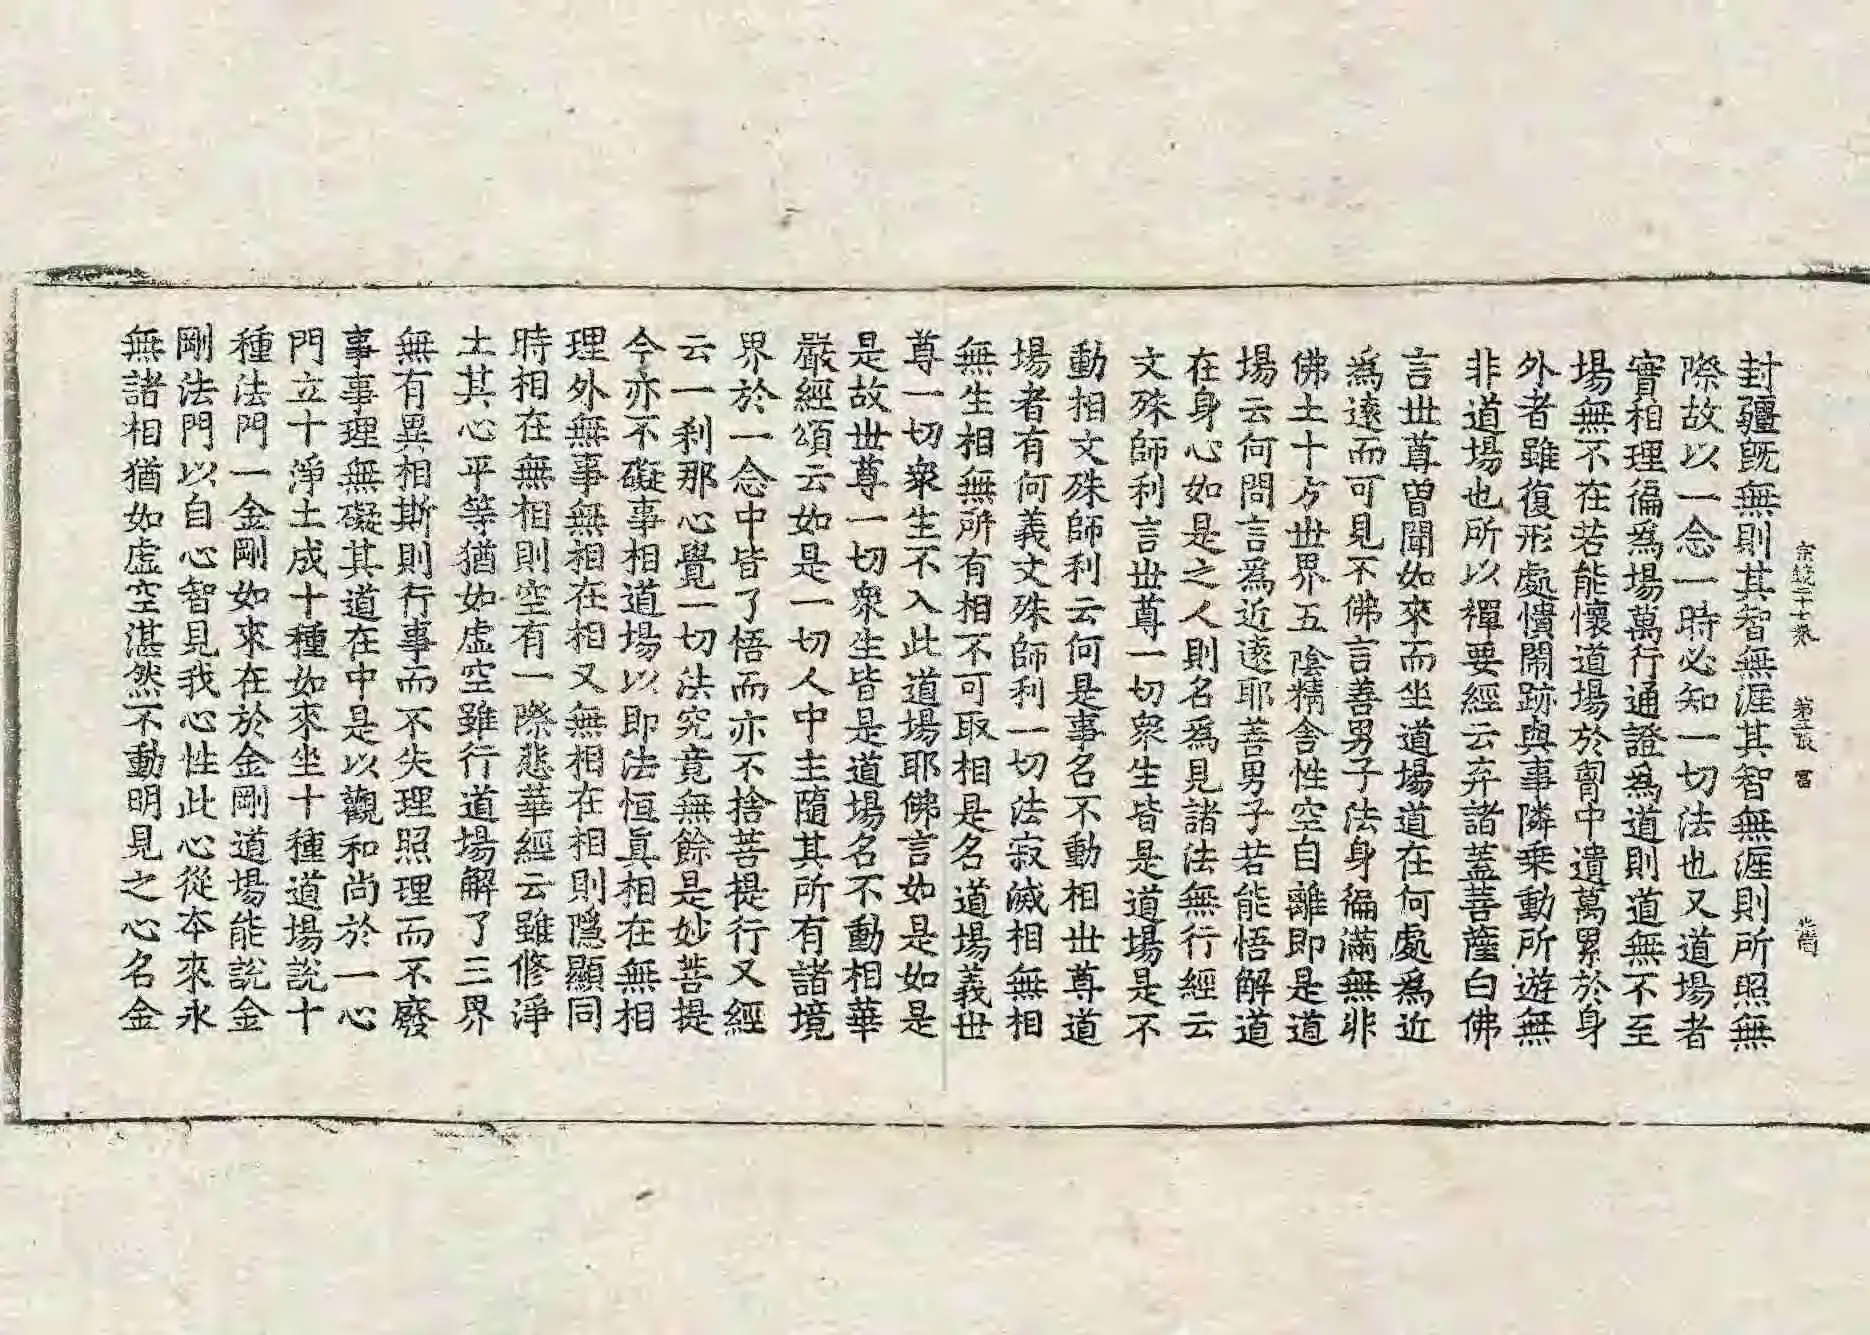 宗鏡二十七卷 第三張 富
封疆既無則其智無涯其智無涯則所照無
際故以一念一時必知一切法也又道場者
實相理徧爲場萬行通證爲道則道無不至
場無不在若能懷道場於胷中遺萬累於身
外者雖復形處憒閙跡與事隣乘動所遊無
非道場也所以禪要經云弃諸蓋菩薩白佛
言世尊曽聞如來而坐道場道在何處爲近
爲遠而可見不佛言善男子法身徧滿無非
佛土十方世界五陰精舍性空自離即是道
場云何問言爲近遠耶善男子若能悟解道
在身心如是之人則名爲見諸法無行經云
文殊師利言世尊一切衆生皆是道場是不
動相文殊師利云何是事名不動相世尊道
場者有何義文殊師利一切法寂滅相無相
無生相無所有相不可取相是名道場義世
尊一切衆生不入此道場耶佛言如是如是
是故世尊一切衆生皆是道場名不動相華
嚴經頌云如是一切人中主隨其所有諸境
界於一念中皆了悟而亦不捨菩提行又經
云一刹那心覺一切法究竟無餘是妙菩提
今亦不礙事相道場以即法恒眞相在無相
理外無事無相在相又無相在相則隱顯同
時相在無相則空有一際悲華經云雖修淨
土其心平等猶如虛空雖行道場解了三界
無有異相斯則行事而不失理照理而不廢
事事理無礙其道在中是以觀和尚於一心
門立十淨土成十種如來坐十種道場說十
種法門一金剛如來在於金剛道場能說金
剛法門以自心智見我心性此心從本來永
無諸相猶如虛空湛然不動明見之心名金